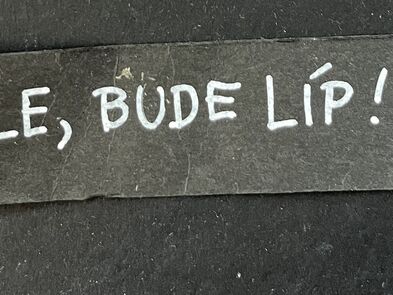 LE, BUDE LÍP!